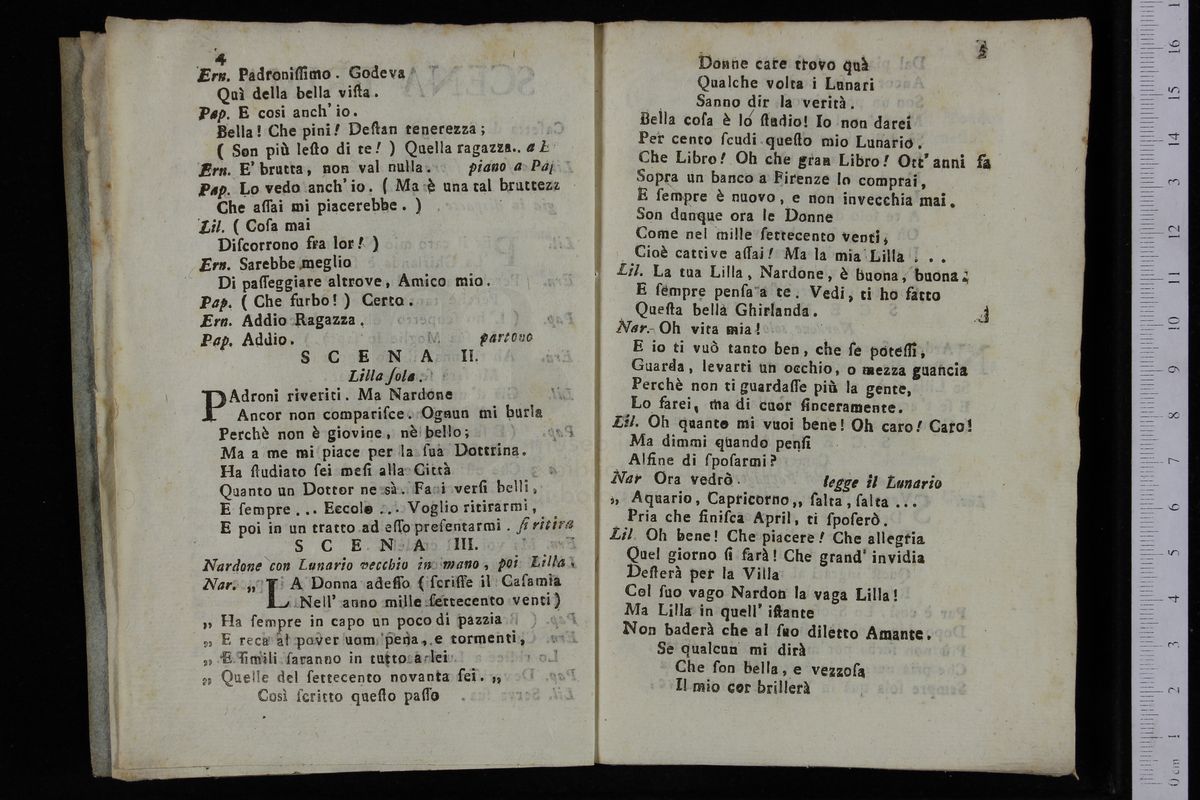 4
Ern. Padroniſſimo. Godeva
Quì della bella viſta.
Pap. E così anch' io.
Bella! Che pini! Deſtan tenerezza;
( Son più leſto di te! ) Quella ragazza..
Ern. E' brutta, non val nulla. piano a Pap
Pap. Lo vedo anch' io. ( Ma è una tal bruttezz
Che aſſai mi piacerebbe. )
Lil. ( Coſa mai
Diſcorrono fra lor! )
Ern. Sarebbe meglio
Di paſſeggiare altrove, Amico mio.
Pap. ( Che furbo! ) Certo.
Ern. Addio Ragazza.
Pap. Addio. partono
SCENA II.
Lilla ſola.
PAdroni riveriti. Ma Nardone
Ancor non compariſce. Ognun mi burla
Perchè non è giovine, nè bello;
Ma a me mi piace per la ſua Dottrina.
Ha ſtudiato ſei meſi alla Città
Quanto un Dottor ne sà. Fa i verſi belli,
E ſempre ... Eccolo ... Voglio ritirarmi,
E poi in un tratto ad eſſo preſentarmi. ſi ritira
SCENA III.
Nardone con Lunario vecchio in mano, poi Lilla.
Nar. „ LA Donna adeſſo ( ſcriſſe il Caſamia
Nell' anno mille ſettecento venti )
„ Ha ſempre in capo un poco di pazzia
„ E reca al pover uom pena, e tormenti,
„ E ſimili ſaranno in tutto a lei
„ Quelle del ſettecento novanta ſei. „
Così ſcritto queſto paſſo
5
Donne care trovo quà
Qualche volta i Lunari
Sanno dir la verità.
Bella coſa è lo ſtudio! Io non darei
Per cento ſcudi queſto mio Lunario.
Che Libro! Oh che gran Libro! Ott' anni fa
Sopra un banco a Firenze lo comprai,
E ſempre è nuovo, e non invecchia mai.
Son dunque ora le Donne
Come nel mille ſettecento venti,
Cioè cattive aſſai! Ma la mia Lilla ! . .
Lil. La tua Lilla, Nardone, è buona, buona;
E ſempre penſa a te. Vedi, ti ho fatto
Queſta bella Ghirlanda.
Nar. Oh vita mia!
E io ti vuò tanto ben, che ſe poteſſi,
Guarda, levarti un occhio, o mezza guancia
Perchè non ti guardaſſe più la gente,
Lo farei, ma di cuor ſinceramente.
Lil. Oh quanto mi vuoi bene! Oh caro! Caro!
Ma dimmi quando penſi
Alfine di ſpoſarmi?
Nar Ora vedrò. legge il Lunario
„ Aquario, Capricorno„ ſalta, ſalta ...
Pria che finiſca April, ti ſpoſerò.
Lil Oh bene! Che piacere! Che allegria
Quel giorno ſi farà! Che grand' invidia
Deſterà per la Villa
Col ſuo vago Nardon la vaga Lilla!
Ma Lilla in quell' iſtante
Non baderà che al ſuo diletto Amante.
Se qualcun mi dirà
Che ſon bella, e vezzoſa
Il mio cor brillerà